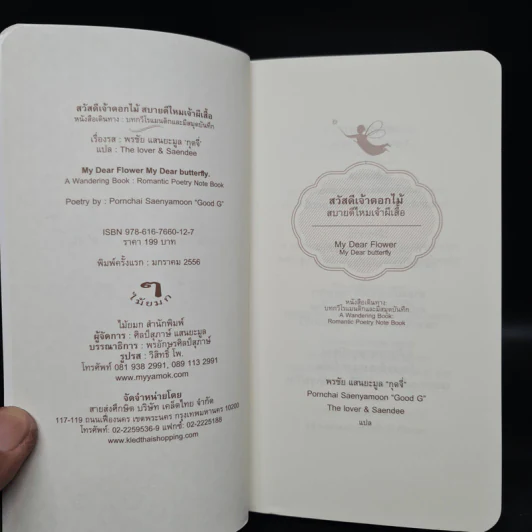 สวัสดีเจ้าดอกไม้ สบายดีไหมเจ้าผีเสื้อ
หนังสือเดินทาง : บทกวีโรแมนติกและมีสมุดบันทึก
เรื่องรส : พรชัย แสนยะมูล "กุดจี่"
แปล : The lover & Saendee
My Dear Flower My Dear butterfly.
A Wandering Book : Romantic Poetry Note Book
Poetry by : Pornchai Saenyamoon "Good G"
ISBN 978-616-7660-12-7
ราคา 199 บาท
พิมพ์ครั้งแรก : มกราคม 2556
ๆ
ไม้ยมก
ไม้ยมก สำนักพิมพ์
ผู้จัดการ : ศิลป์สุภาษ์ แสนยะมูล
บรรณาธิการ : พรอักษรศิลป์สุภาษ์
รูปรส : วิสิทธิ์ โพ.
โทรศัพท์ 081 938 2991, 089 113 2991
www.myyamok.com
จัดจำหน่ายโดย
สายส่งศึกษิต บริษัท เคล็ดไทย จำกัด
117-119 ถนนเฟื่องนคร เขตพระนคร กรุงเทพมหานคร 10200
โทรศัพท์: 02-2259536-9 แฟกซ์: 02-2225188
www.kledthaishopping.com
สวัสดีเจ้าดอกไม้
สบายดีไหมเจ้าผีเสื้อ
My Dear Flower
My Dear butterfly
หนังสือเดินทาง:
บทกวีโรแมนติกและมีสมุดบันทึก
A Wandering Book:
Romantic Poetry Note Book
พรชัย แสนยะมูล "กุดจี่"
Pornchai Saenyamoon "Good G"
The lover & Saendee
แปล